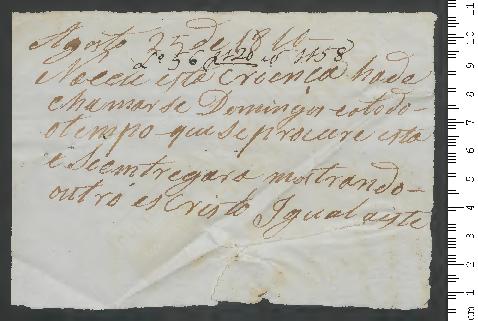 Agosto 25 de 18
Lº 36 fl 120 nº 1158
Naceu esta Crienca hade
chamarse Domingos eatodo-
otempo que seprocure esta
e Seemtregara mostrando-
outro escristo Igual aeste
cm 1 2 3 4 5 6 7 8 9 10